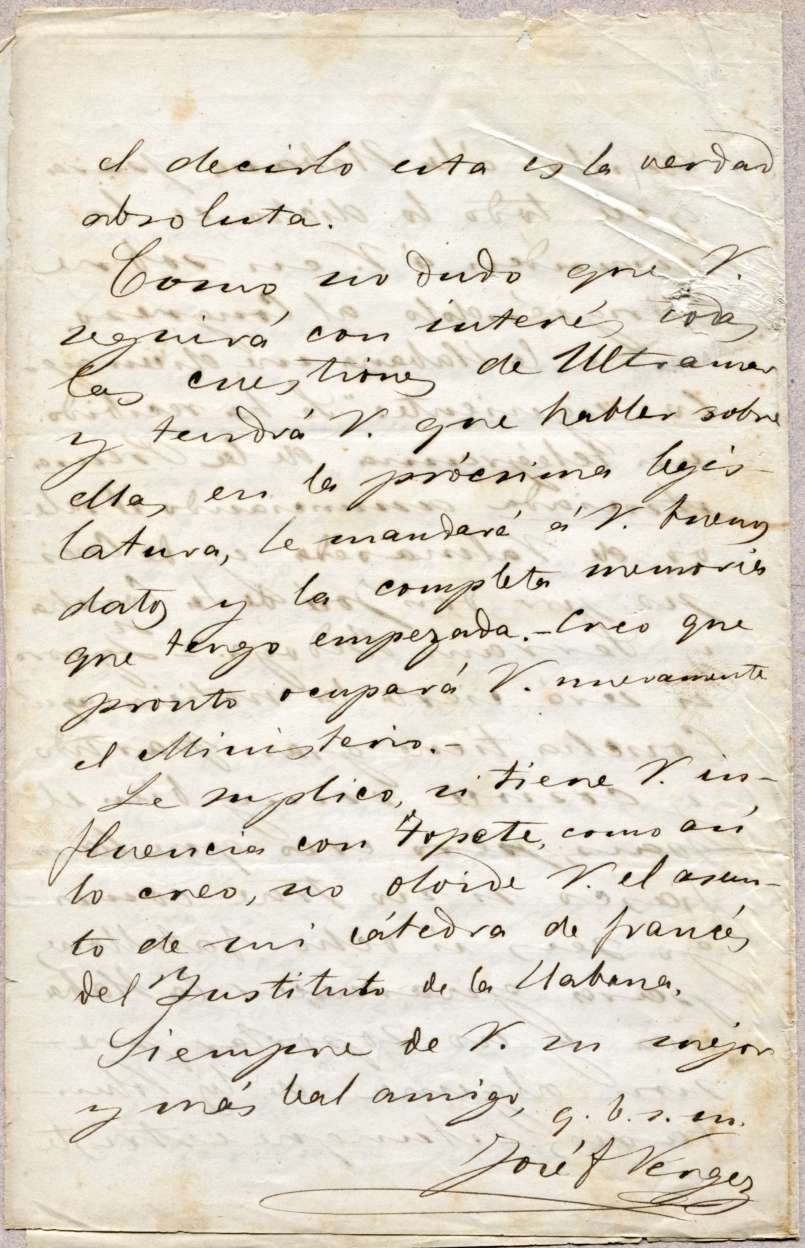 el decirlo esta es la verdad
absoluta.
Como no dudo que V.
seguirá con interés todas
las cuestiones de Ultramar
y tendrá V. que hablar sobre
ellas en la prócsima legis-
latura, le mandaré á V. buenos
datos y la completa memoria
que tengo empezada.- Creo que
pronto ocupará V. nuevamente
el Ministerio.-
Le suplico, si tiene V. in-
fluencia con Topete, como así
lo creo, no olvide V. el asun-
to de mi cátedra de francés
del Instituto de la Habana.
Siempre de V. su mejor
y más leal amigo,
q. b. s. m.
José F Vergez